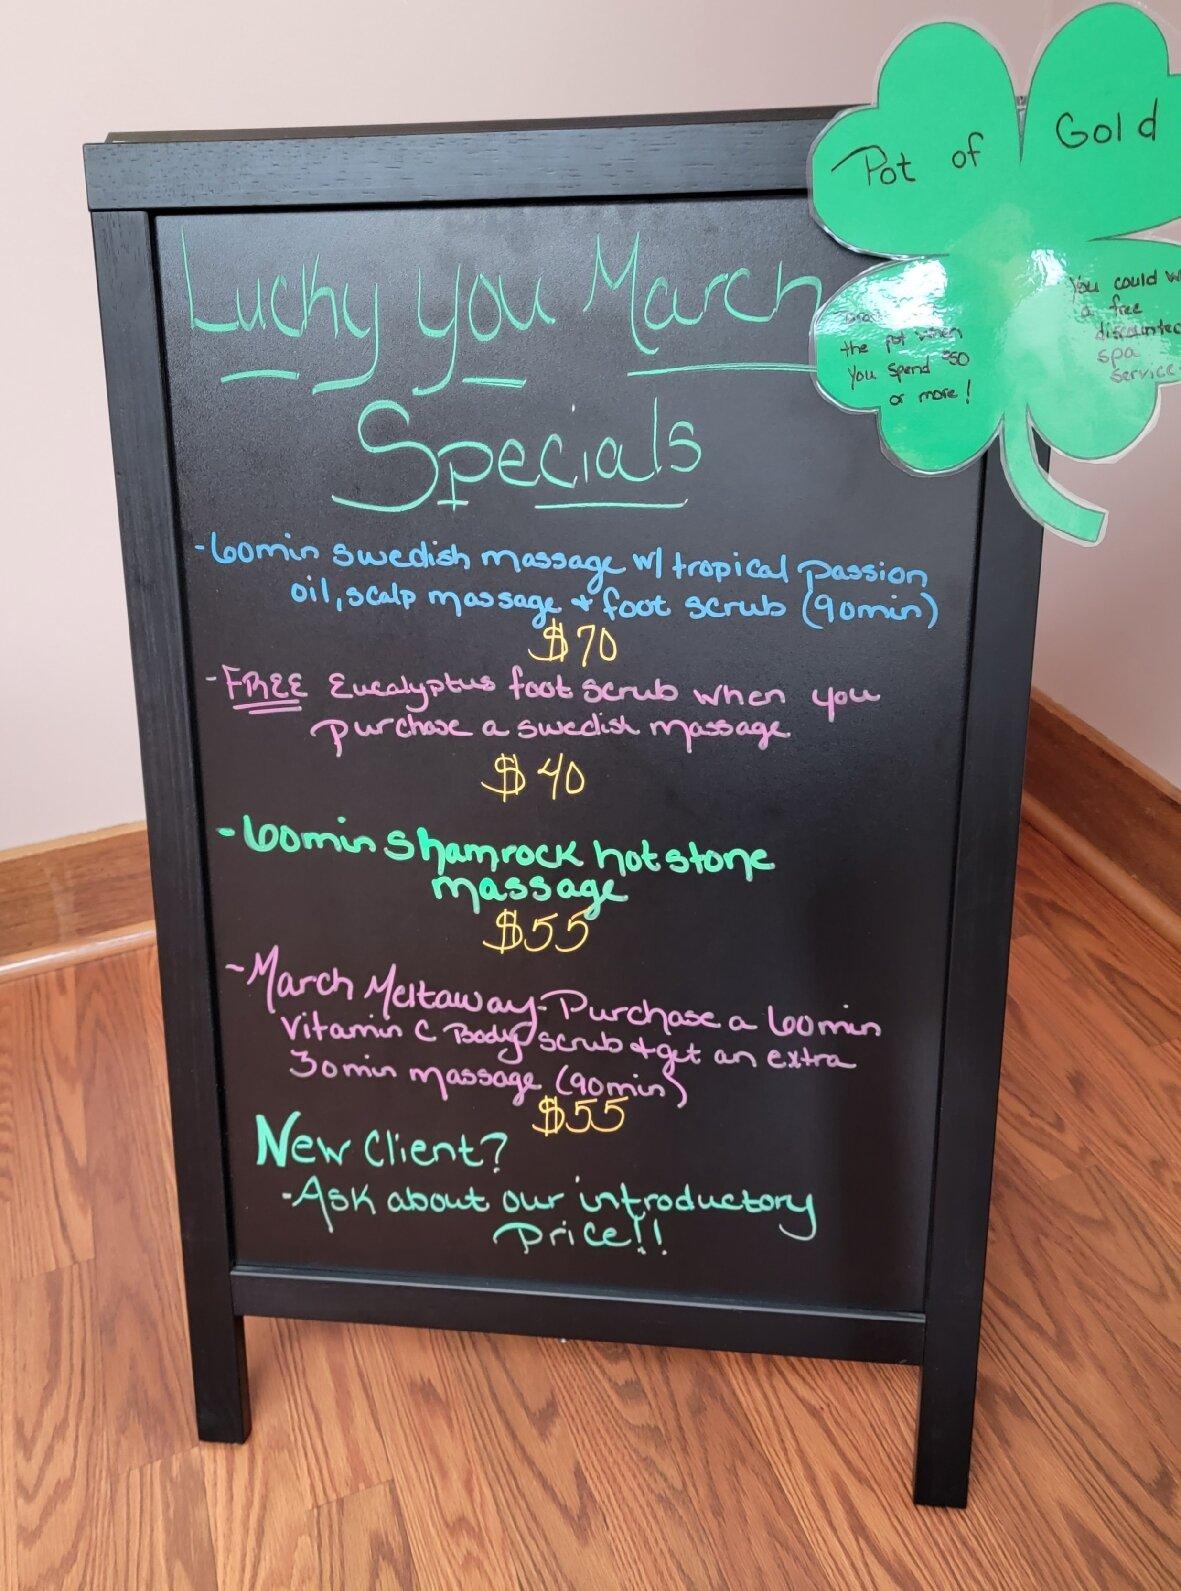 Pot of Gold
the pot when
you spend $50
or more!
You could
a free
discounted
spa
service
Lucky you March
Specials
-60min swedish massage w/ tropical passion
oil, scalp massage + foot scrub (90min)
$70
-FREE Eucalyptus foot scrub when you
purchase a swedish massage
$40
-60min Shamrock hot stone
massage
$55
-March Meltaway-Purchase a 60min
Vitamin C Body scrub + get an extra
30min massage (90min)
$55
New Client?
-Ask about our introductory
Price!!